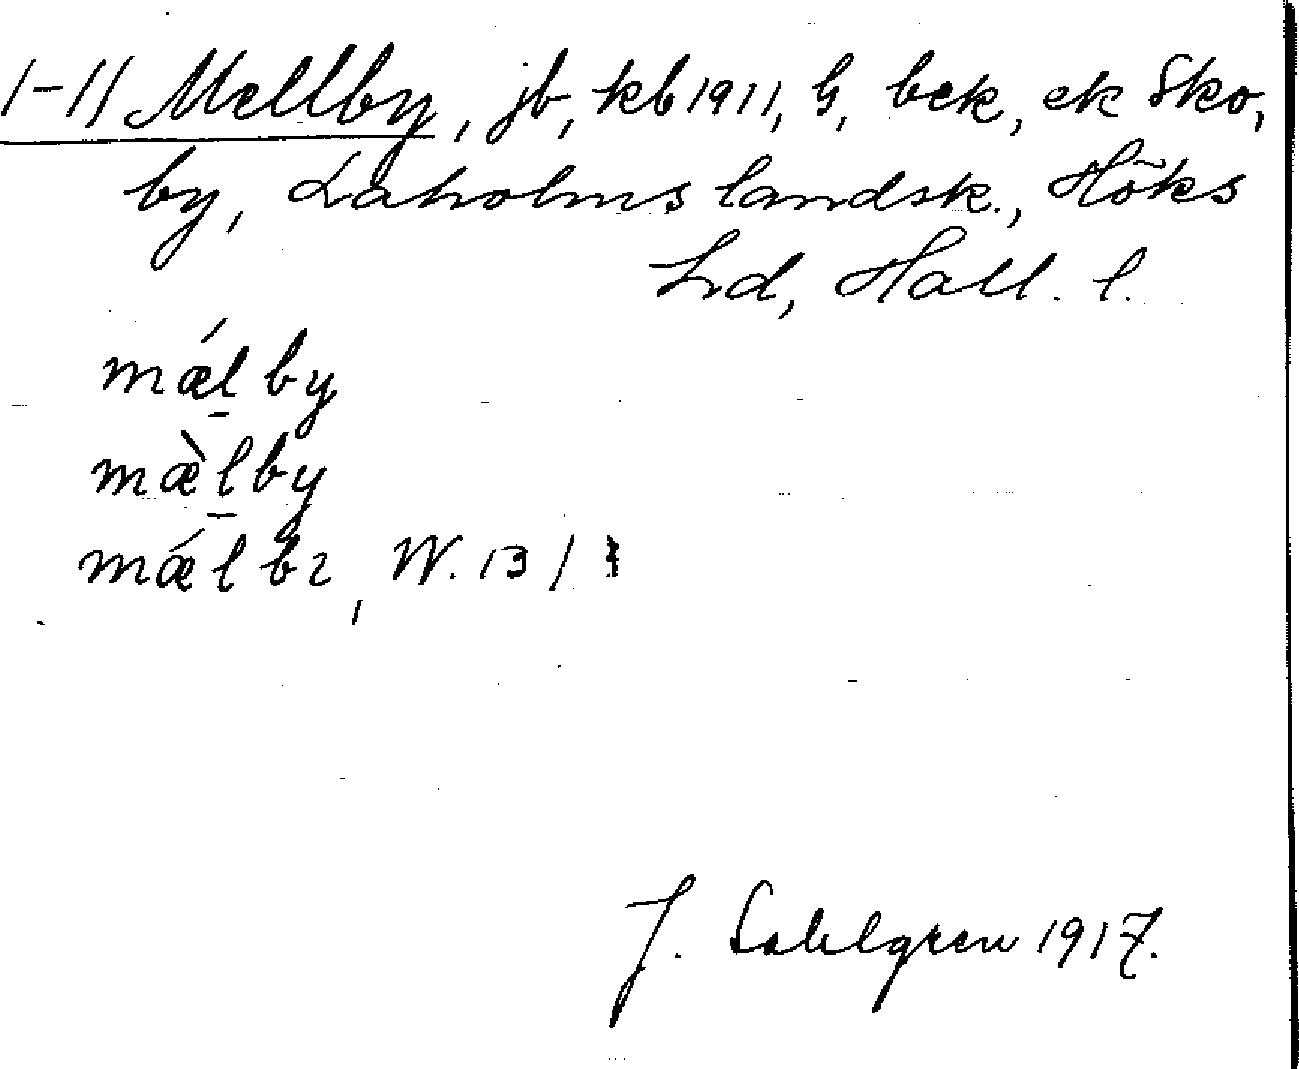 1-11 Mellby, jb, kb 1911, G, bek, ek Sko,
by, Laholms landsk., Höks
hd, Hall. l.
mǽl̠by
mæ̀l̠by
mǽlbɩ, W. 13/
J. Sahlgren 1917.